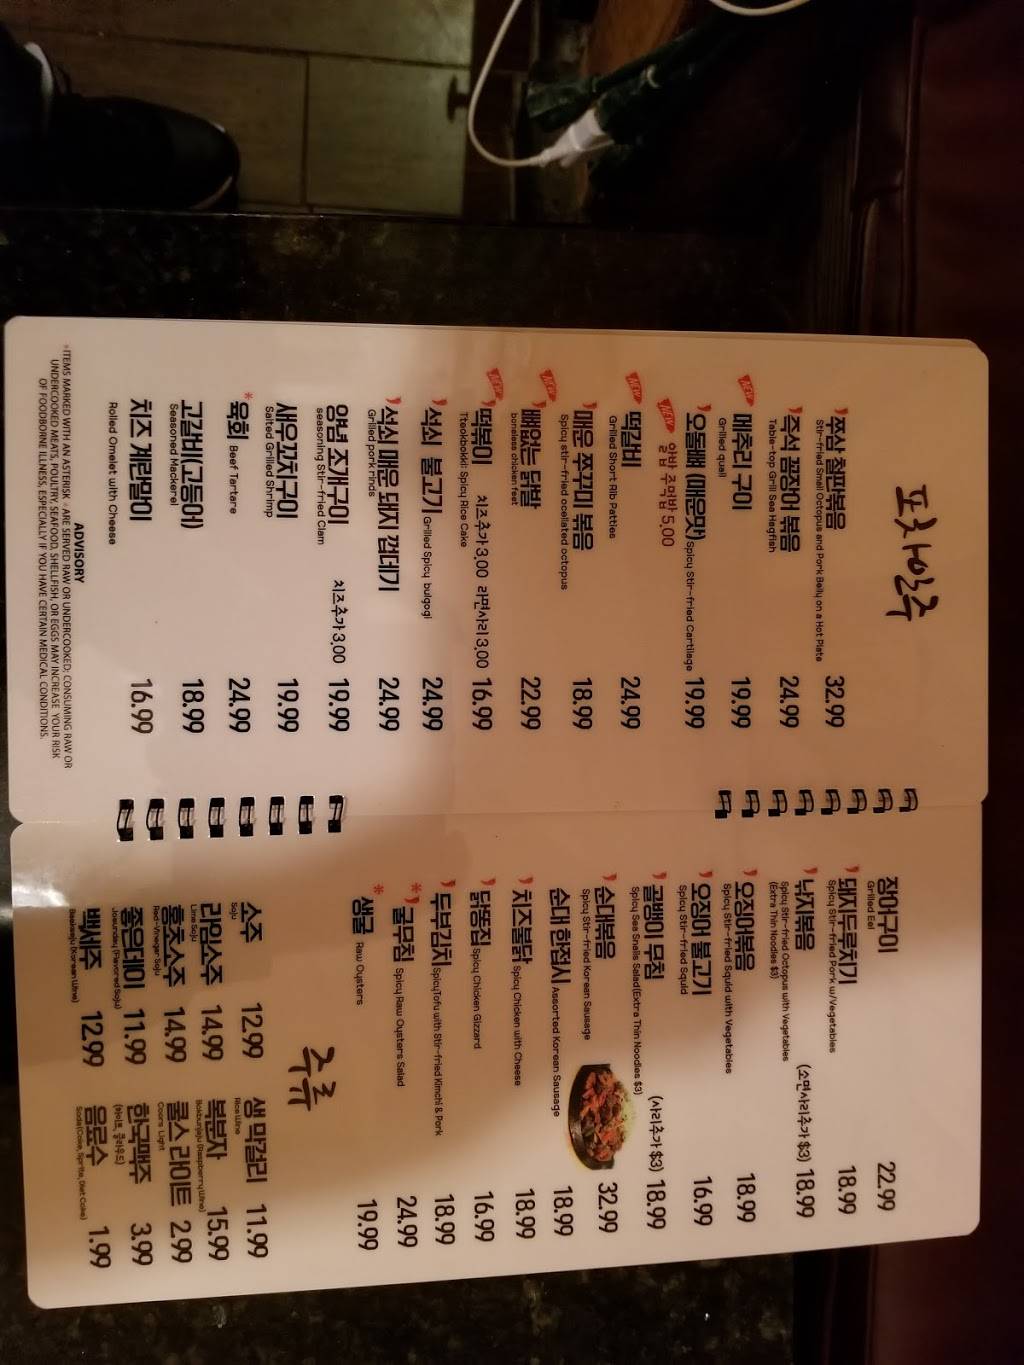 포차안주
쭈삼 철판볶음 32.99
Stir-fried Small Octopus and Pork Belly on a Hot Plate
즉석 꼼장어 볶음 24.99
Table-top Grill Sea Hagfish
NEW 메추리 구이 19.99
Grilled quail
오돌뼈 (매운맛) Spicy Stir-fried Cartilage 19.99
NEW 알밥 주먹밥 5.00
NEW 떡갈비 24.99
Grilled Short Rib Patties
매운 쭈꾸미 볶음 18.99
Spicy stir-fried ocellated octopus
NEW 뼈없는 닭발 22.99
boneless chicken feet
NEW 떡볶이 치즈추가 3.00 라면사리 3.00 16.99
Tteokbokki: Spicy Rice Cake
석쇠 불고기 Grilled Spicy bulgogi 24.99
석쇠 매운 돼지 껍데기 24.99
Grilled pork rinds
양념 조개구이 치즈추가 3.00 19.99
seasoning Stir-fried Clam
새우꼬치구이 19.99
Salted Grilled Shrimp
*육회 Beef Tartare 24.99
고갈비(고등어) 18.99
Seasoned Mackerel
치즈 계란말이 16.99
Rolled Omelet with Cheese
ADVISORY
*ITEMS MARKED WITH AN ASTERISK * ARE SERVED RAW OR UNDERCOOKED; CONSUMING RAW OR
UNDERCOOKED MEATS, POULTRY, SEAFOOD, SHELLFISH, OR EGGS MAY INCREASE YOUR RISK
OF FOODBORNE ILLNESS, ESPECIALLY IF YOU HAVE CERTAIN MEDICAL CONDITIONS.
장어구이 22.99
Grilled Eel
돼지두루치기 18.99
Spicy Stir-fried Pork w/Vegetables
낙지볶음 (소면사리추가 $3) 18.99
Spicy Stir-fried Octopus with Vegetables
(Extra Thin Noodles $3)
오징어볶음 18.99
Spicy Stir-fried Squid with Vegetables
오징어 불고기 16.99
Spicy Stir-fried Squid
골뱅이 무침 (사리추가 $3) 18.99
Spicy Sea Snails Salad(Extra Thin Noodles $3)
순대볶음 32.99
Spicy Stir-fried Korean Sausage
순대 한접시 Assorted Korean Sausage 18.99
치즈불닭 Spicy Chicken with Cheese 18.99
닭똥집 Spicy Chicken Gizzard 16.99
두부김치 Spicy Tofu with Stir-fried Kimchi & Pork 18.99
*굴무침 Spicy Raw Oysters Salad 24.99
*생굴 Raw Oysters 19.99
주류
소주 12.99
Soju
라임소주 14.99
Lime Soju
홍초소주 14.99
Red-Vinegar Soju
좋은데이 11.99
Joeunday (Flavored Soju)
백세주 12.99
Baekseju (Korean Wine)
생 막걸리 11.99
Rice Wine
복분자 15.99
Bokbunjaju (Raspberry Wine)
쿨스 라이트 2.99
Coors Light
한국맥주 3.99
(하이트, 클라우드)
음료수 1.99
Soda(Coke, Sprite, Diet Coke)